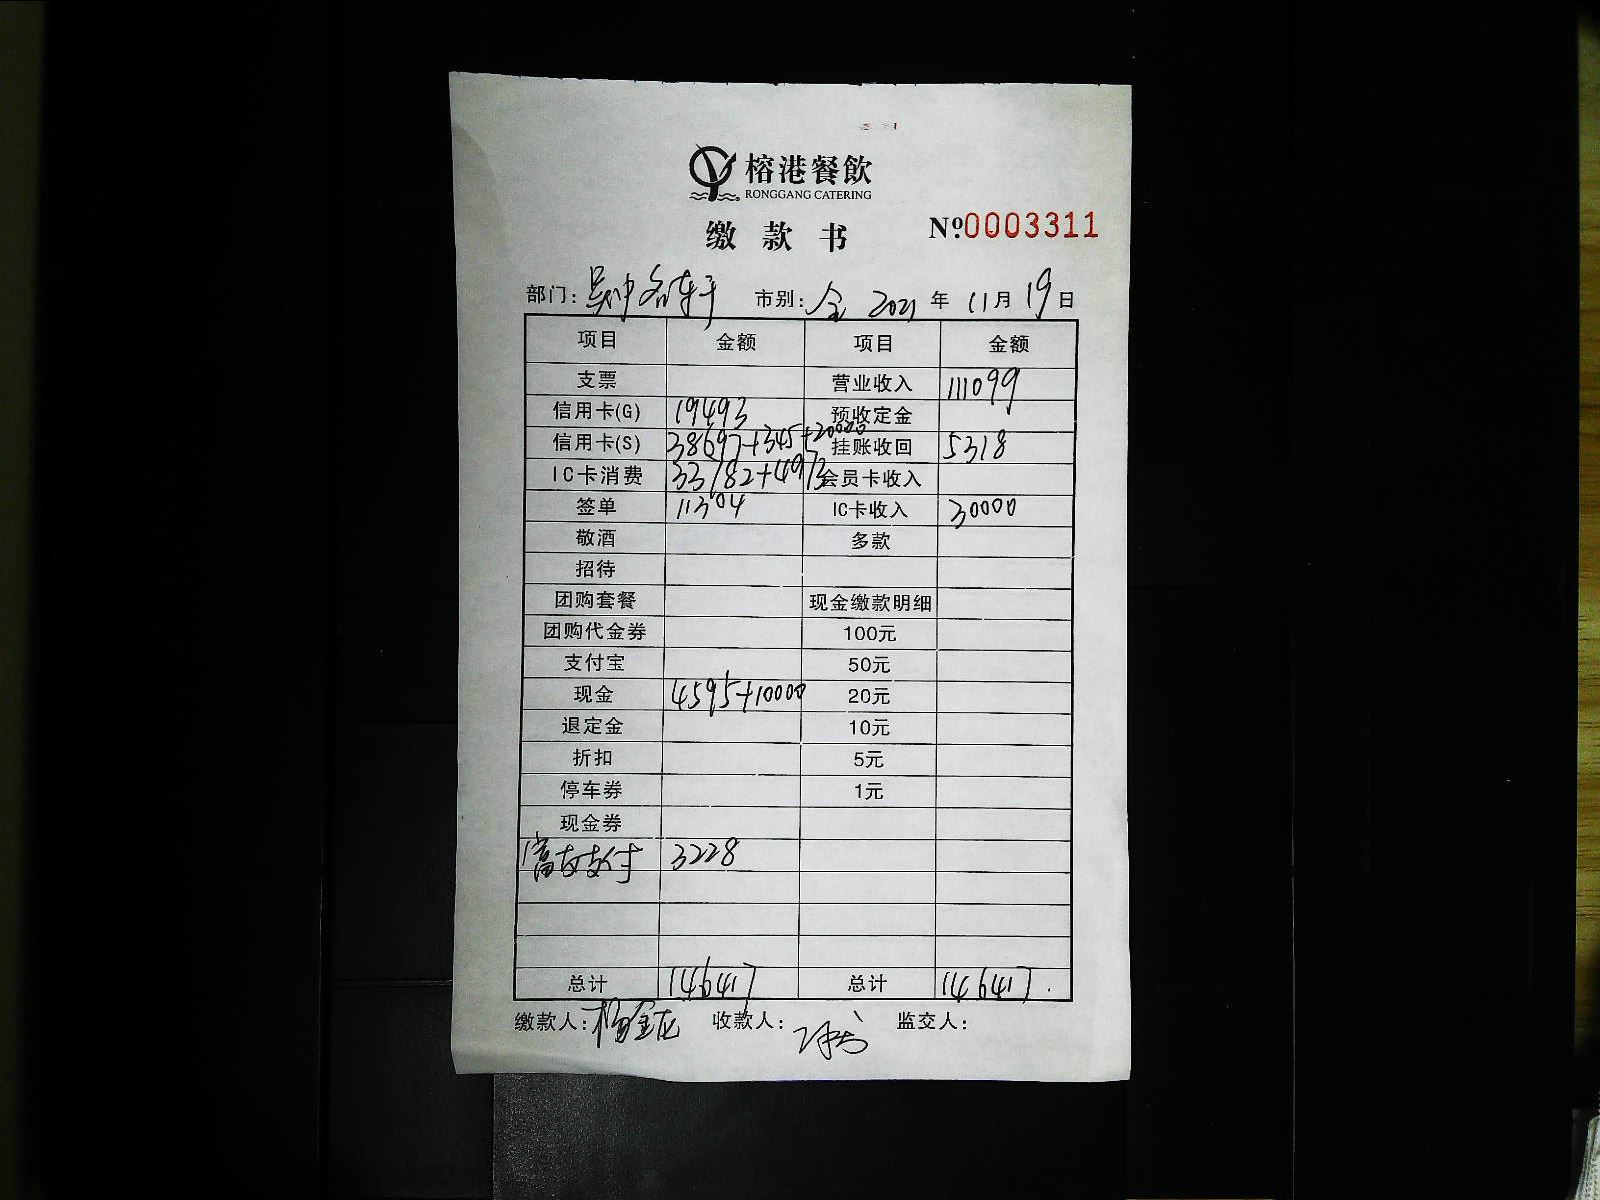 榕港餐飲
RONGGANG CATERING
缴款书 №0003311
部门: 吴中名轩 市别: 全 2021年11月19日
项目 金额 项目 金额
支票 营业收入 111099
信用卡(G) 19493 预收定金
信用卡(S) 38697+345+20000 挂账收回 5318
IC卡消费 33782+4973 会员卡收入
签单 11304 IC卡收入 30000
敬酒 多款
招待
团购套餐 现金缴款明细
团购代金券 100元
支付宝 50元
现金 4595+10000 20元
退定金 10元
折扣 5元
停车券 1元
现金券
富友支付 3228
总计 146417 总计 146417
缴款人: 杨金龙 收款人: 监交人: